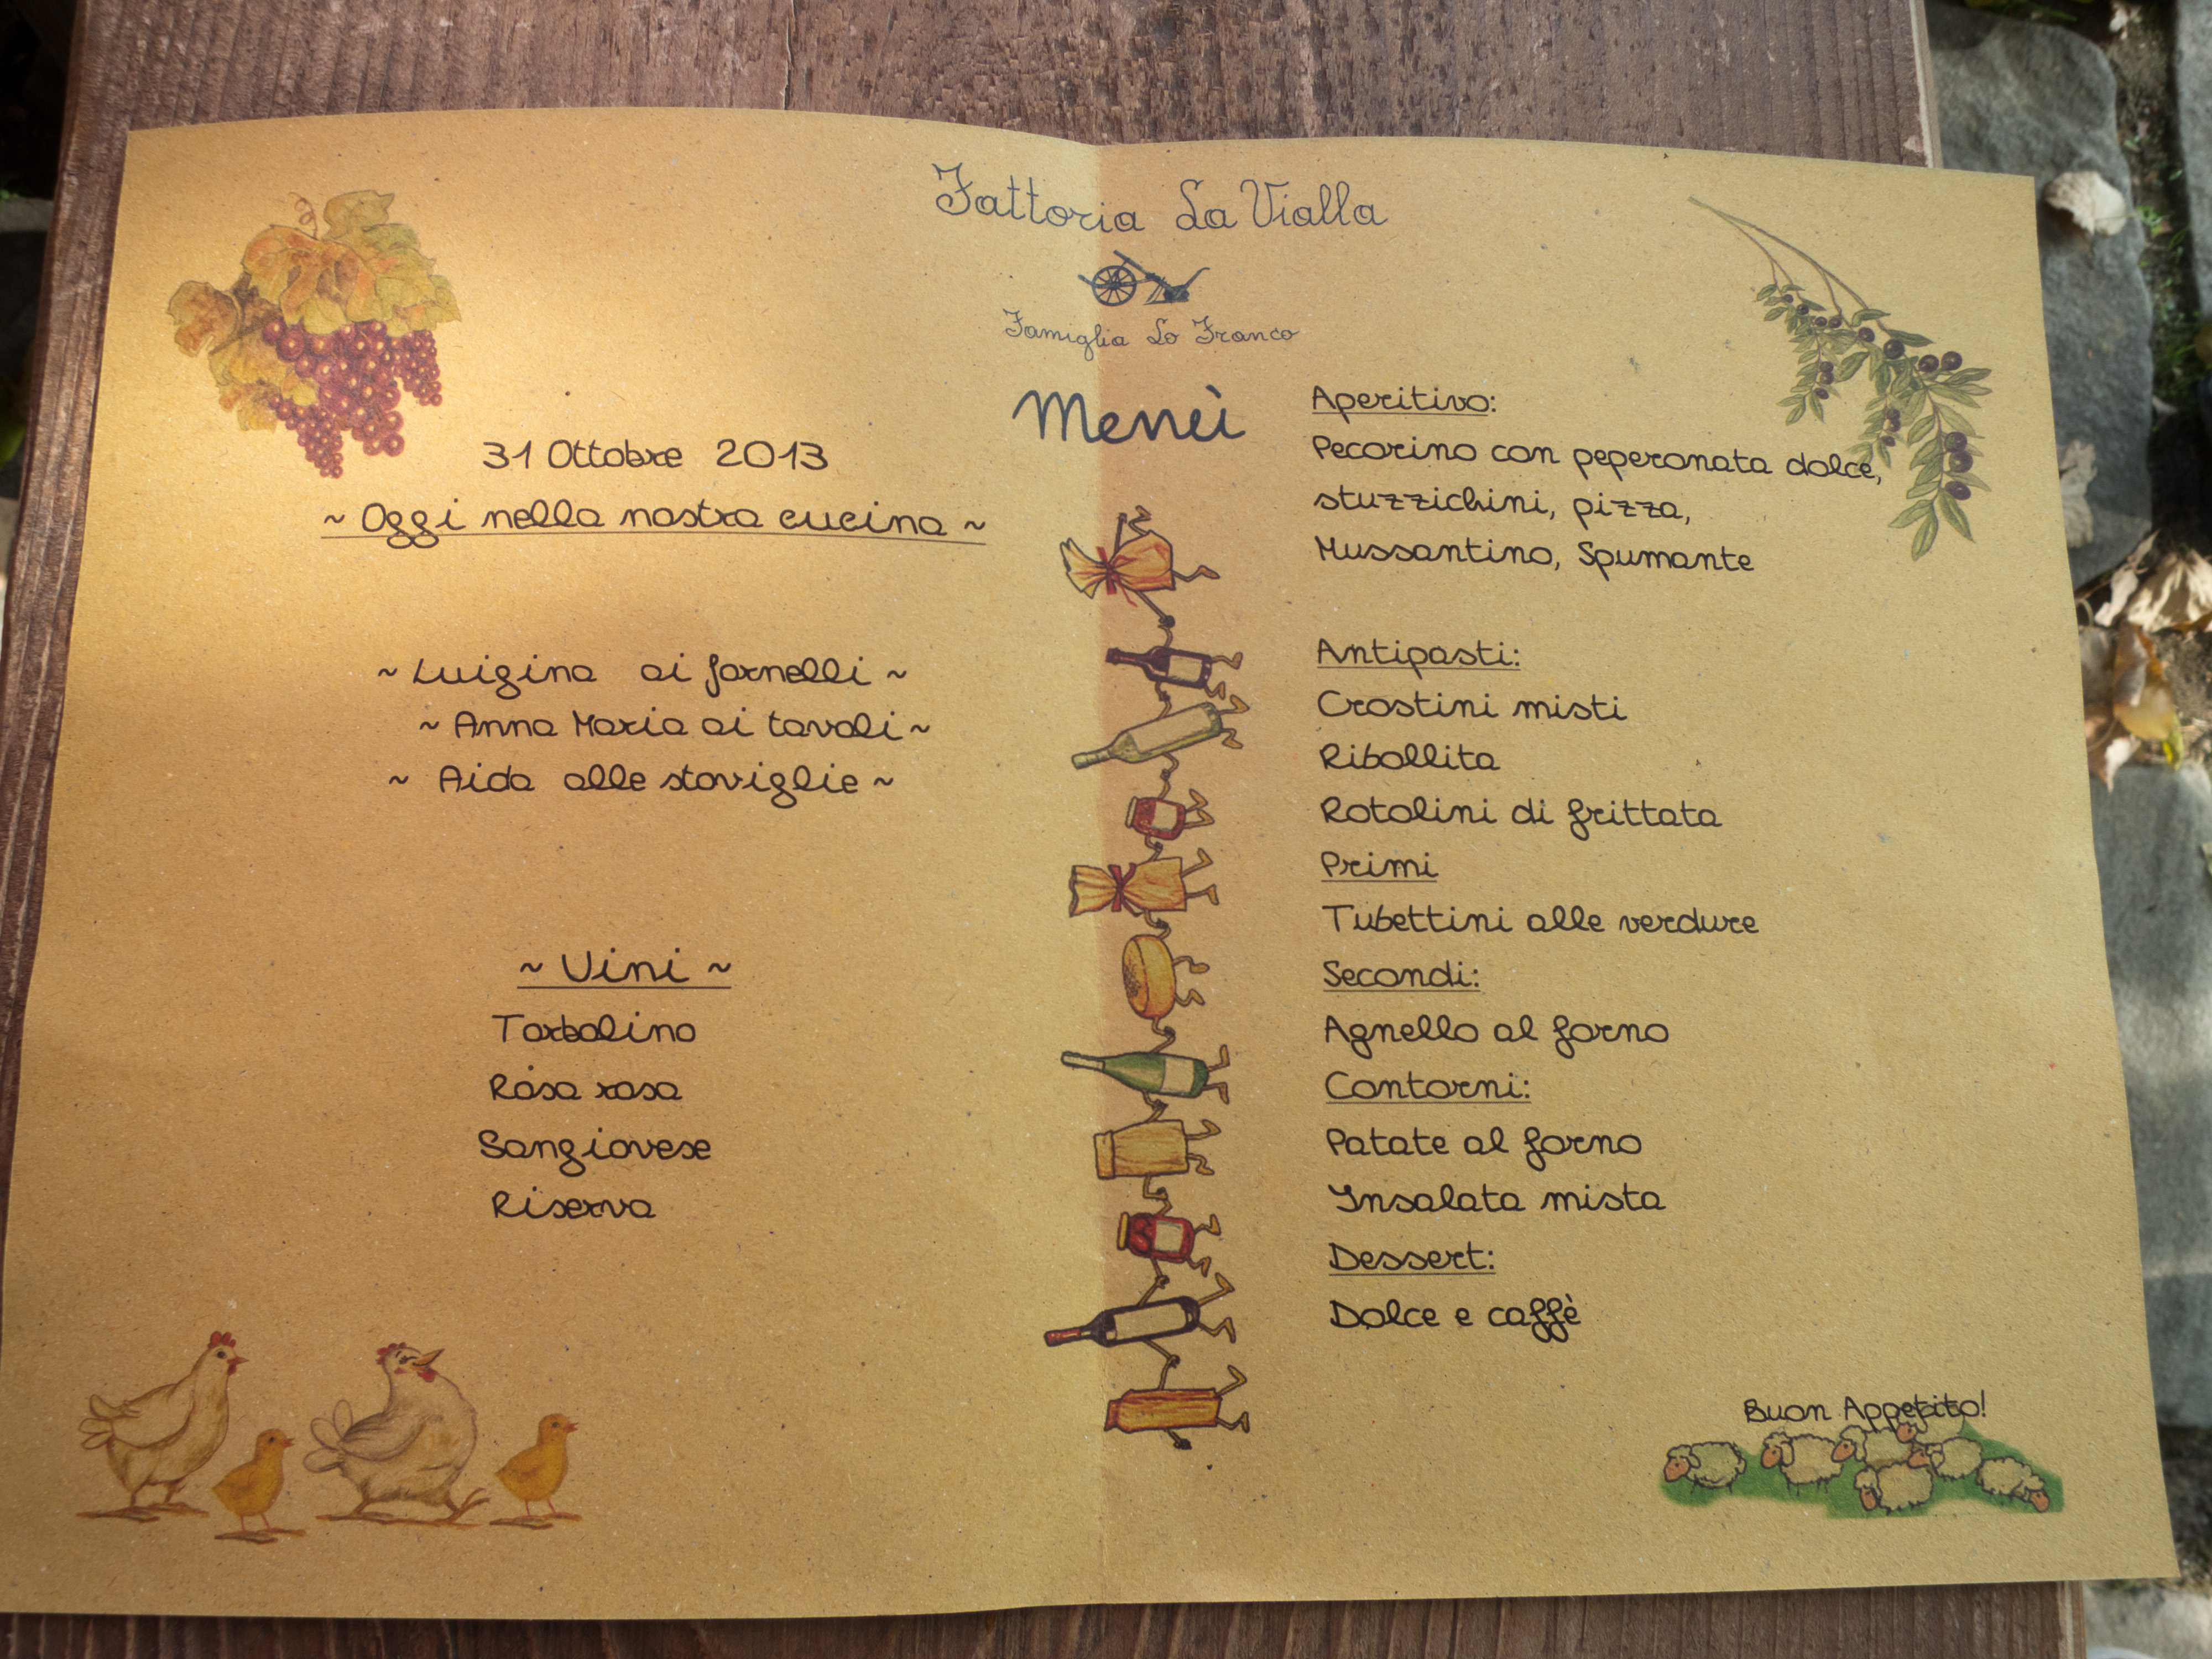 Fattoria La Vialla
Famiglia Lo Franco
Menù
31 Ottobre 2013
~ Oggi nella nostra cucina ~
~ Luigina ai fornelli ~
~ Anna Maria ai tavoli ~
~ Aida alle stoviglie ~
~ Vini ~
Torbolino
Rosa rosa
Sangiovese
Riserva
Aperitivo:
Pecorino con peperonata dolce,
stuzzichini, pizza,
Mussantino, Spumante
Antipasti:
Crostini misti
Ribollita
Rotolini di frittata
Primi
Tubettini alle verdure
Secondi:
Agnello al forno
Contorni:
Patate al forno
Insalata mista
Dessert:
Dolce e caffè
Buon Appetito!